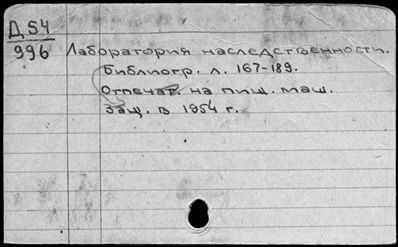 Д 54
996
Лаборатория наследственности.
Библиогр. л. 167-189.
Отпечат. на пиш. маш.
Защ. в 1954 г.